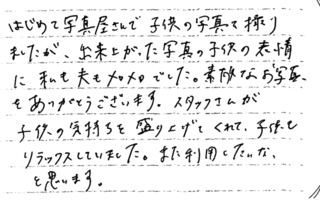 はじめて写真屋さんで子供の写真を撮り
ましたが、出来上がった写真の子供の表情
に私も夫もメロメロでした。素敵なお写真
をありがとうございます。スタッフさんが
子供の気持ちを盛り上げてくれて、子供も
リラックスしていました。また利用したいな
と思います。